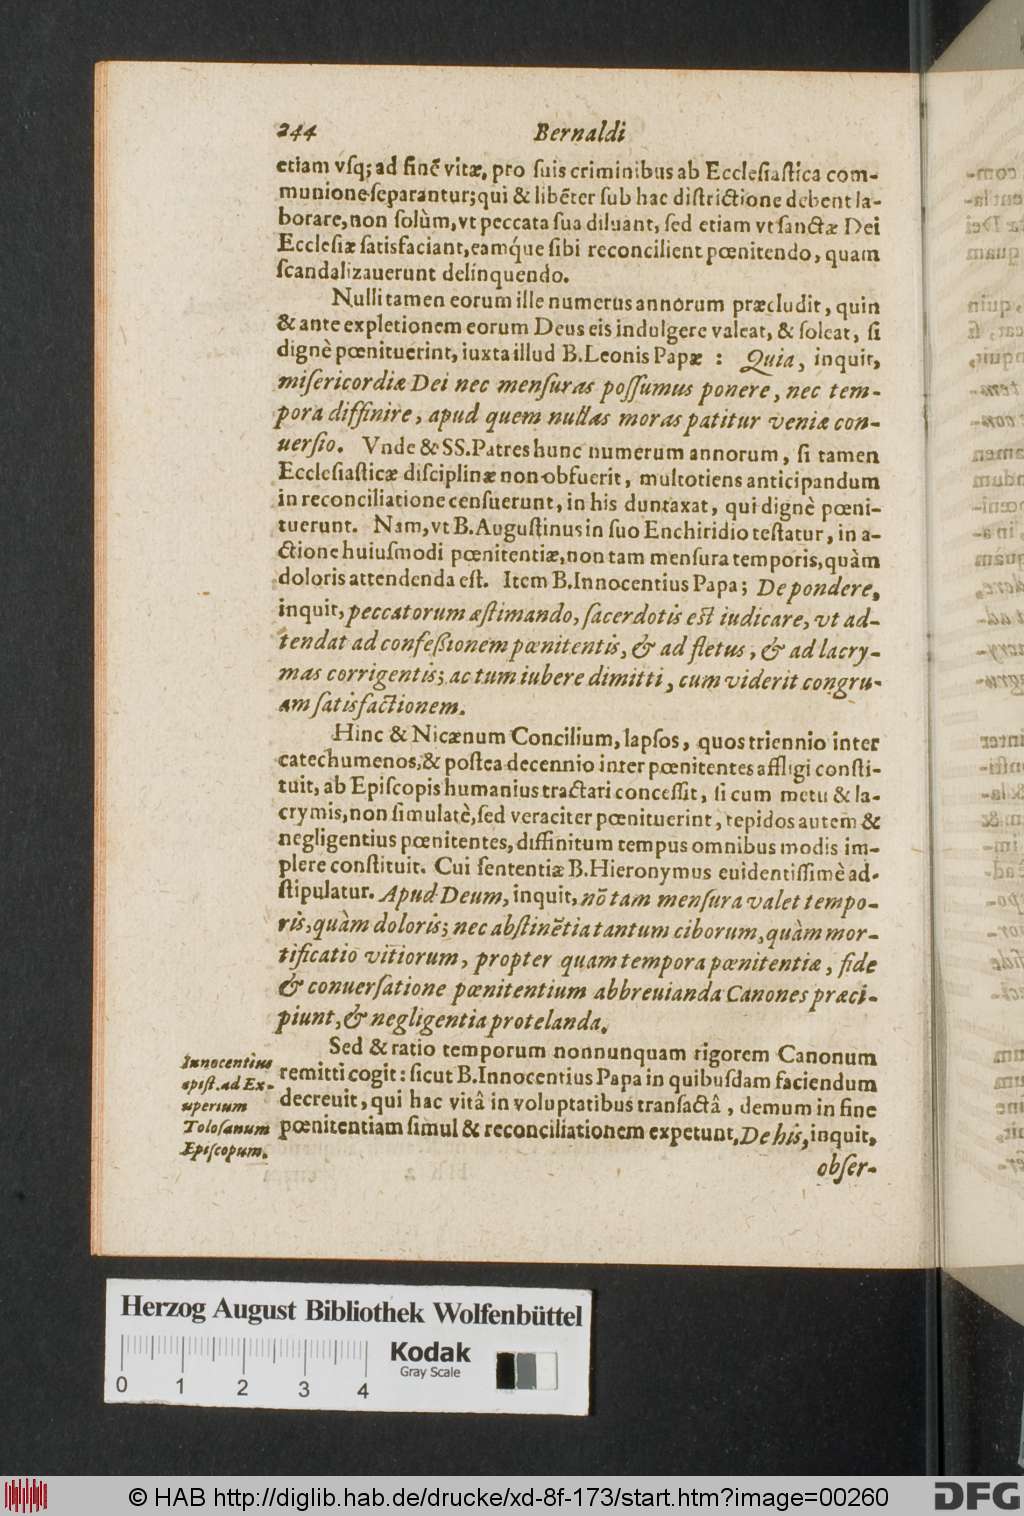 244 Bernaldi
etiam vſq; ad finẽ vitæ, pro ſuis criminibus ab Eccleſiaſtica com-
munione ſeparantur; qui & libẽter ſub hac diſtrictione debent la-
borare, non ſolùm, vt peccata ſua diluant, ſed etiam vt ſanctæ Dei
Eccleſiæ ſatisfaciant, eamq́ue ſibi reconcilient pœnitendo, quam
ſcandalizauerunt delinquendo.
Nulli tamen eorum ille numerus annorum præcludit, quin
& ante expletionem eorum Deus eis indulgere valeat, & ſoleat, ſi
dignè pœnituerint, iuxta illud B. Leonis Papæ : Quia, inquit,
miſericordiæ Dei nec menſuras poſſumus ponere, nec tem-
pora diffinire, apud quem nullas moras patitur veniæ con-
uerſio. Vnde & SS. Patres hunc numerum annorum, ſi tamen
Eccleſiaſticæ diſciplinæ non obfuerit, multotiens anticipandum
in reconciliatione cenſuerunt, in his duntaxat, qui dignè pœni-
tuerunt. Nam, vt B. Auguſtinus in ſuo Enchiridio teſtatur, in a-
ctione huiuſmodi pœnitentiæ, non tam menſura temporis, quàm
doloris attendenda eſt. Item B. Innocentius Papa; De pondere,
inquit, peccatorum æſtimando, ſacerdotis eſt iudicare, vt ad-
tendat ad confeßionem pœnitentis, & ad fletus, & ad lacry-
mas corrigentis; ac tum iubere dimitti, cum viderit congru-
am ſatisfactionem.
Hinc & Nicænum Concilium, lapſos, quos triennio inter
catechumenos, & poſtea decennio inter pœnitentes affligi conſti-
tuit, ab Epiſcopis humanius tractari conceſſit, ſi cum metu & la-
crymis, non ſimulatè, ſed veraciter pœnituerint, tepidos autem &
negligentius pœnitentes, diffinitum tempus omnibus modis im-
plere conſtituit. Cui ſententiæ B. Hieronymus euidentiſſimè ad-
ſtipulatur. Apud Deum, inquit, nõ tam menſura valet tempo-
ris, quàm doloris; nec abſtinẽtia tantum ciborum, quàm mor-
tificatio vitiorum, propter quam tempora pœnitentiæ, fide
& conuerſatione pœnitentium abbreuianda Canones præci-
piunt, & negligentia protelanda.
Sed & ratio temporum nonnunquam rigorem Canonum
remitti cogit: ſicut B. Innocentius Papa in quibuſdam faciendum
decreuit, qui hac vitâ in voluptatibus tranſactâ, demum in fine
pœnitentiam ſimul & reconciliationem expetunt, De his, inquit,
obſer-
Innocentius
epiſt. ad Ex-
uperium
Toloſanum
Epiſcopum.
Herzog August Bibliothek Wolfenbüttel
0 1 2 3 4
Kodak
Gray Scale
© HAB http://diglib.hab.de/drucke/xd-8f-173/start.htm?image=00260
DFG